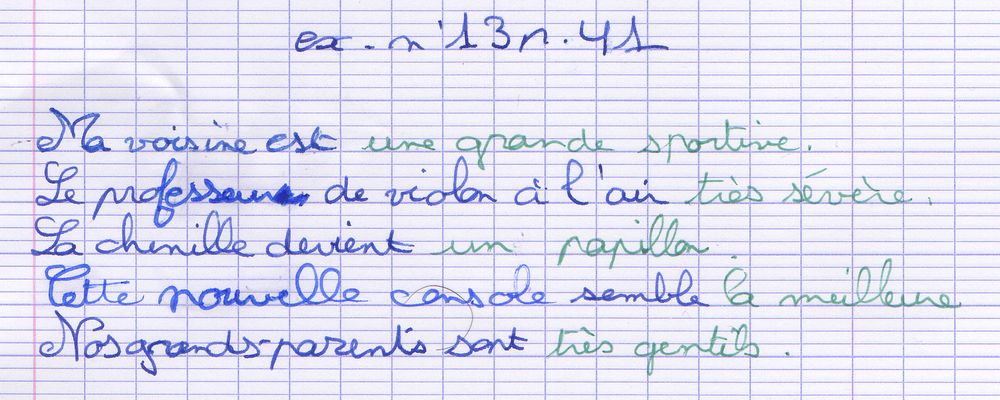 ex. n°13 p. 41
Ma voisine est une grande sportive.
Le professeur de violon à l'air très sévère.
La chenille devient un papillon.
Cette nouvelle console semble la meilleure
Nos grands-parents sont très gentils.